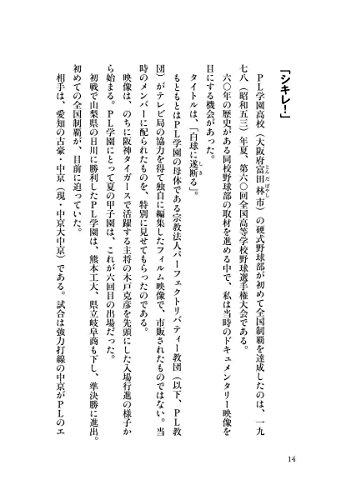 「シキレ！」
ＰＬ学園高校（大阪府富田林市）の硬式野球部が初めて全国制覇を達成したのは、一九
七八（昭和五三）年夏、第六〇回全国高等学校野球選手権大会である。
六〇年の歴史がある同校野球部の取材を進める中で、私は当時のドキュメンタリー映像を
目にする機会があった。
タイトルは、「白球に遂断る」。
もともとはＰＬ学園の母体である宗教法人パーフェクトリバティー教団（以下、ＰＬ教
団）がテレビ局の協力を得て独自に編集したフィルム映像で、市販されたものではない。当
時のメンバーに配られたものを、特別に見せてもらったのである。
映像は、のちに阪神タイガースで活躍する主将の木戸克彦を先頭にした入場行進の様子か
ら始まる。ＰＬ学園にとって夏の甲子園は、これが六回目の出場だった。
初戦で山梨県の日川に勝利したＰＬ学園は、熊本工大、県立岐阜商も下し、準決勝に進出。
初めての全国制覇が、目前に迫っていた。
相手は、愛知の古豪・中京（現・中京大中京）である。試合は強力打線の中京がＰＬのエ
14